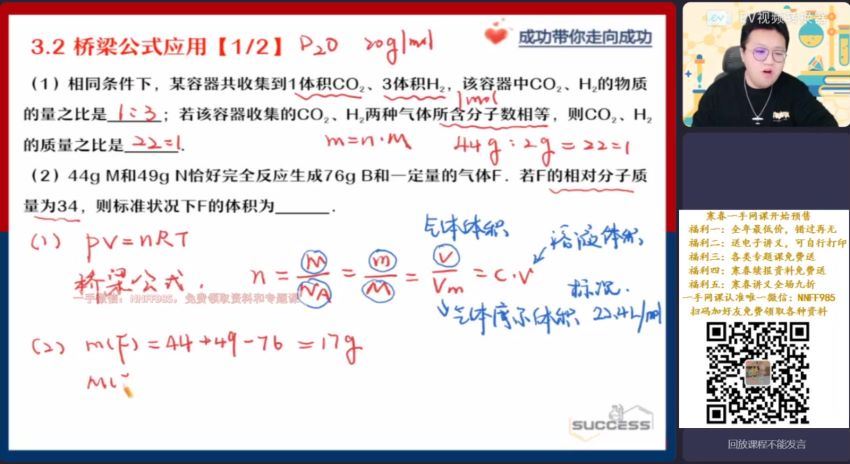 3.2 桥梁公式应用【1/2】 P20 20g/mol
成功带你走向成功
(1) 相同条件下，某容器共收集到1体积CO₂、3体积H₂，该容器中CO₂、H₂的物质
的量之比是 1:3 ；若该容器收集的CO₂、H₂两种气体所含分子数相等，则CO₂、H₂
1mol
的质量之比是 22=1 . m=n·M 44g:2g=22=1
(2) 44g M和49g N恰好完全反应生成76g B和一定量的气体F．若F的相对分子质
量为34，则标准状况下F的体积为______.
(1) PV=nRT
气体体积
溶液体积
桥梁公式. n = N/NA = m/M = V/Vm = C·V
标况.
气体摩尔体积 22.4L/mol
一手微信：NNFF985，免费领取资料和专题课
(2) m(F)=44+49-76=17g
M(
SUCCESS
EV视频转换器
寒春一手网课开始预售
福利一：全年最低价，错过再无
福利二：送电子讲义，可自行打印
福利三：各类专题课免费送
福利四：寒春续报资料免费送
福利五：寒春讲义全场九折
一手网课认准唯一微信：NNFF985
扫码加好友免费领取各种资料
回放课程不能发言